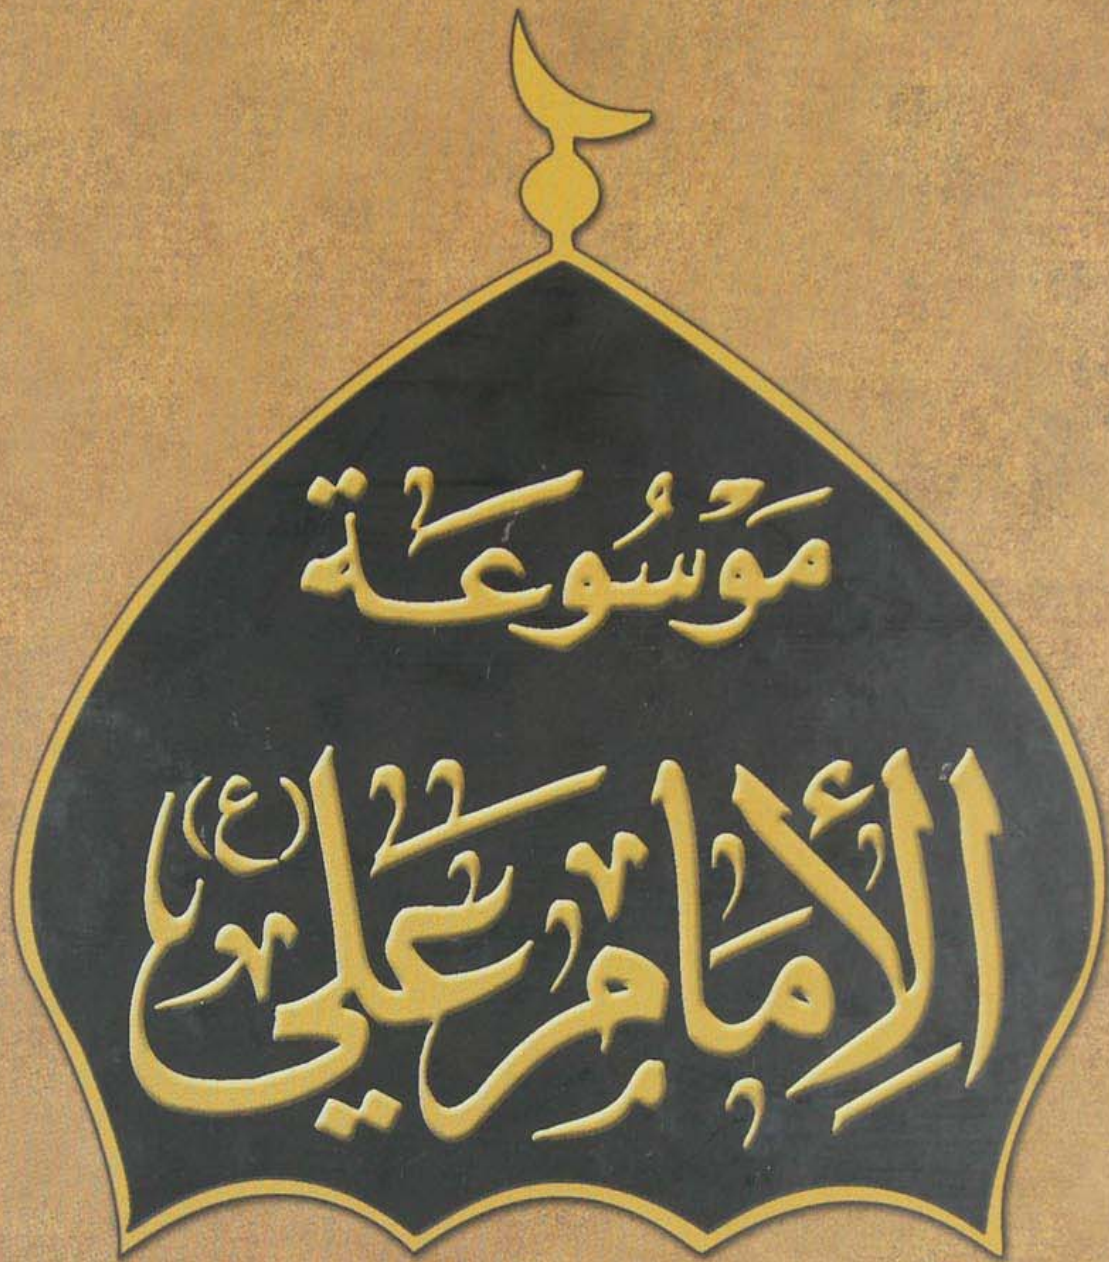 مَوْسُوعَة
الإِمَام عَلي (ع)